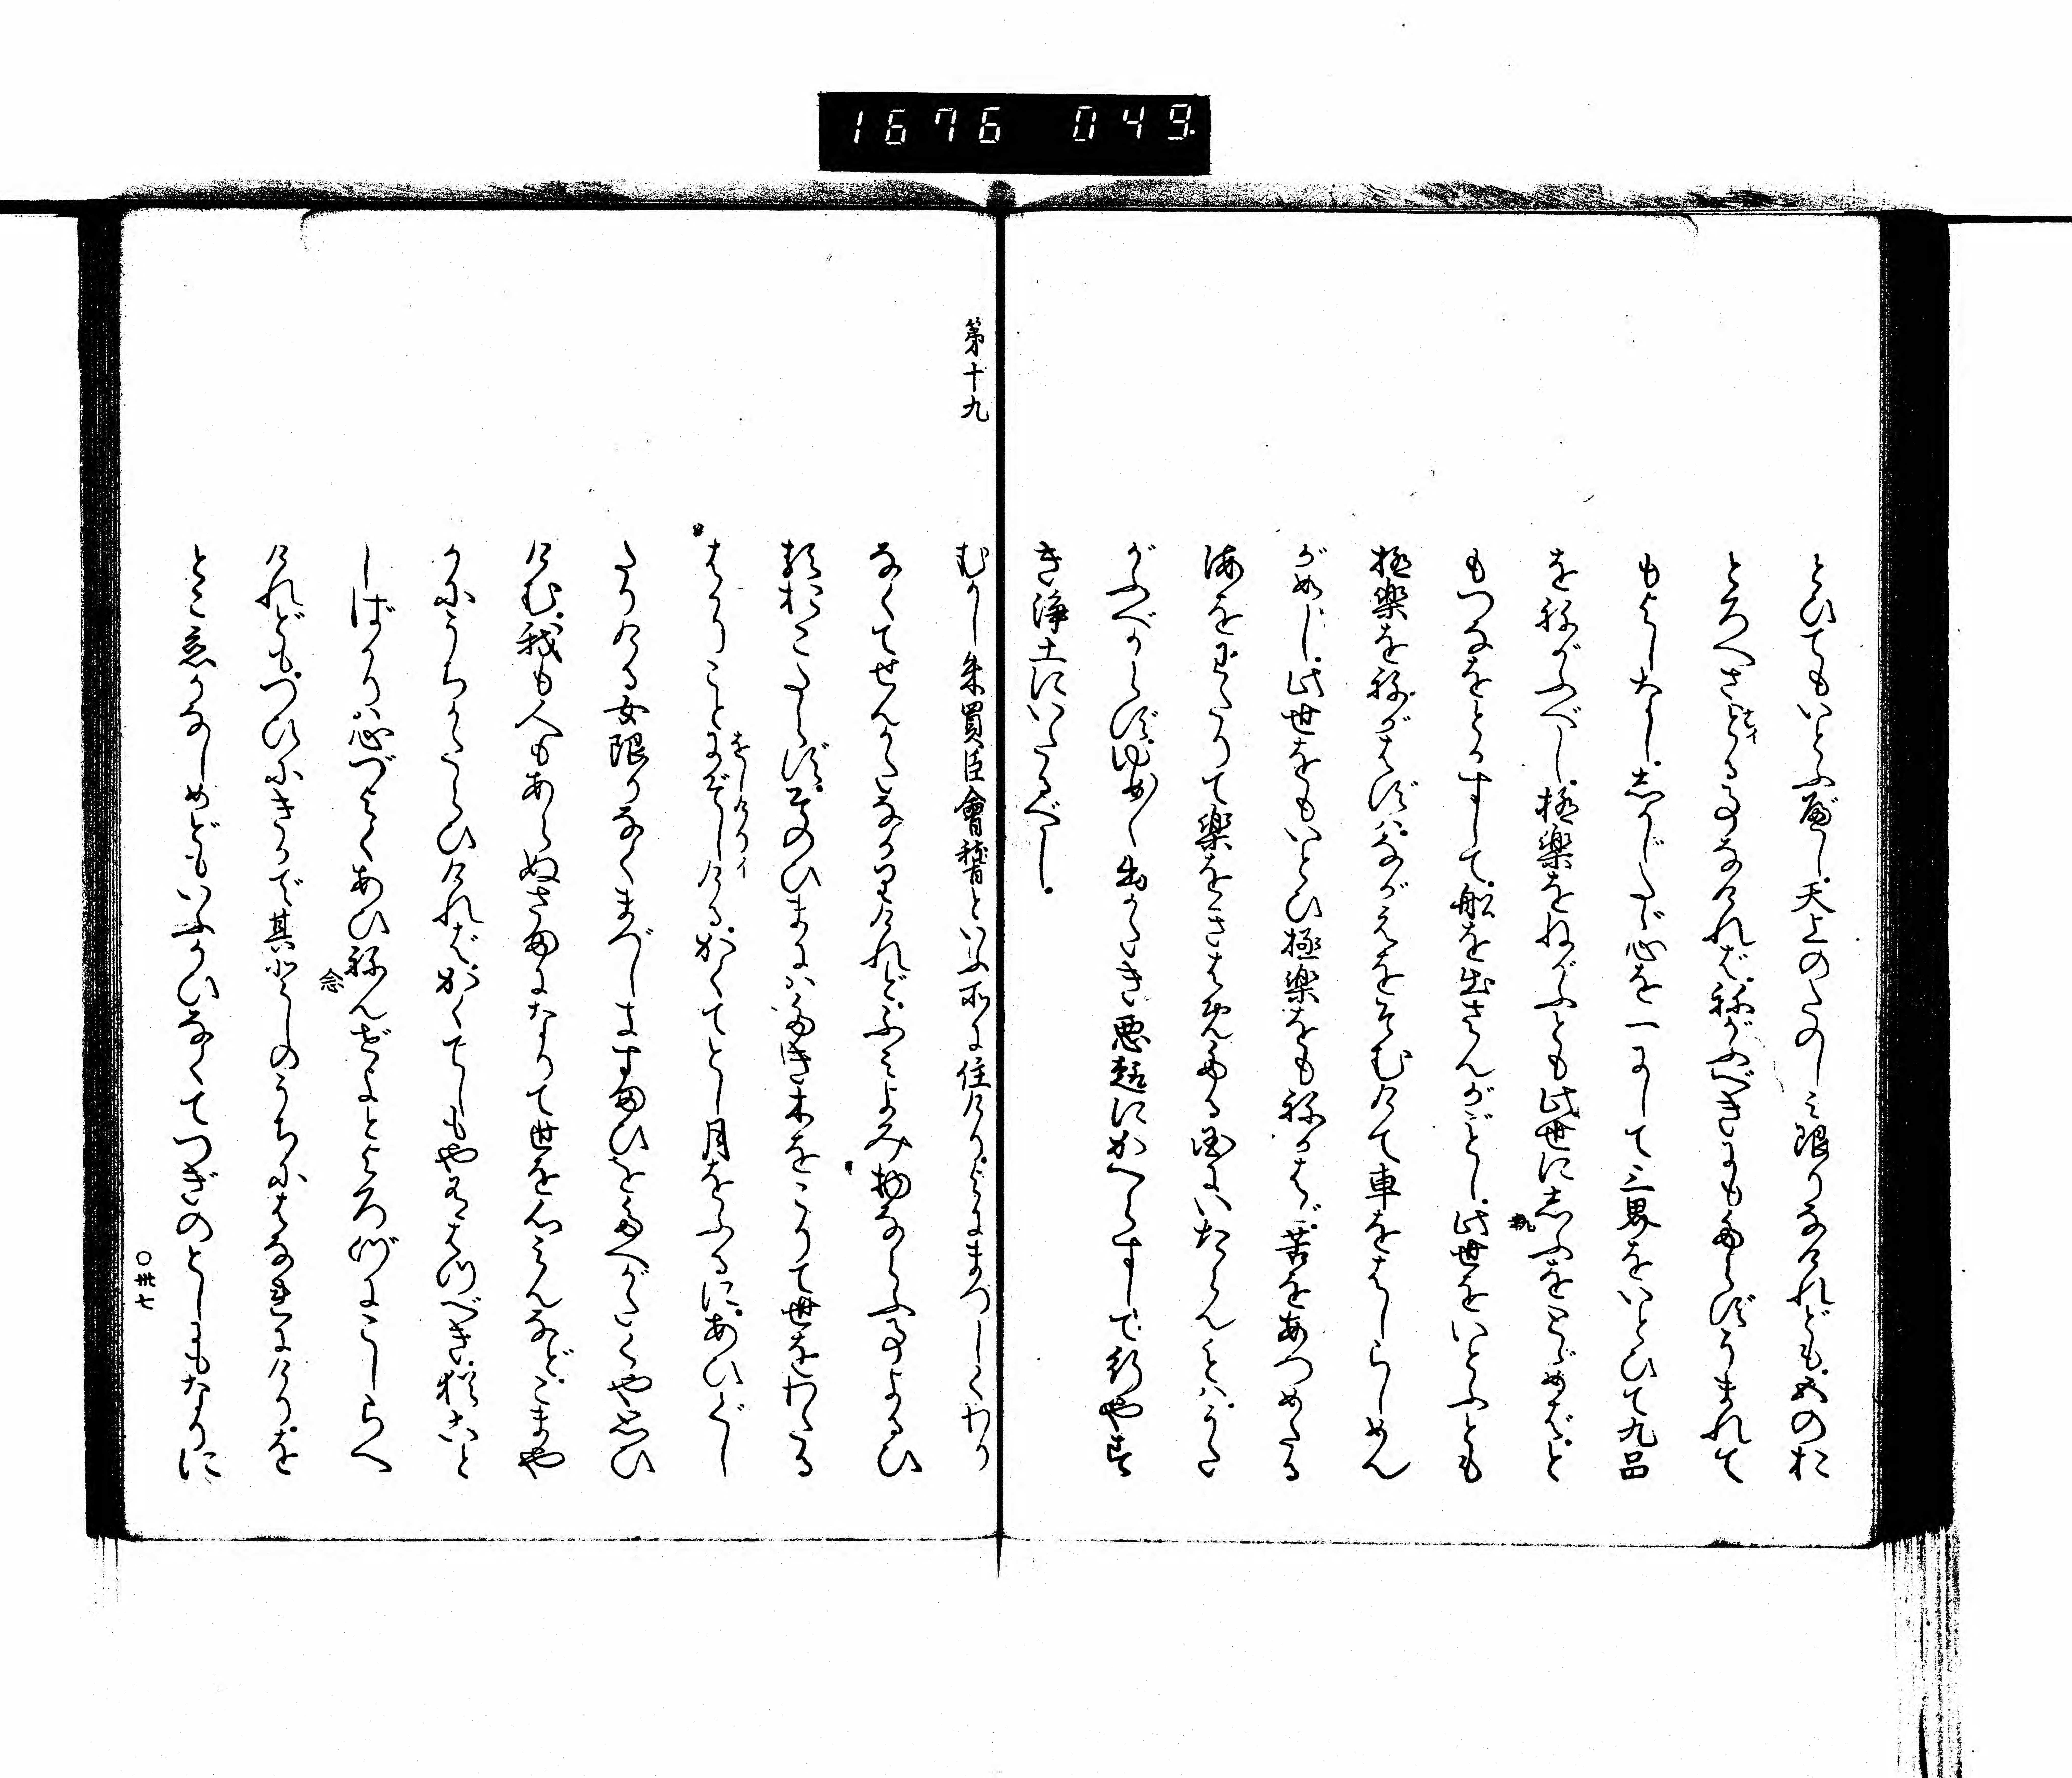 とひてもいとふべし。天上のたのしミ限りなけれども。五のお
とろへさとる事なければ。ねがふべきにもあらず。うまれて
もよしなし。志かじたゞ心を一にして三界をいとひて九品
をねがふべし。極楽をねがふとも此世に志ふをとゞめば。と
執
もつなをとかずして。船を出さんがごとし。此世をいとふとも
極楽をねがはずハ。ながえをそむけて車をはしらしめん
がごとし。此世をもいとひ極楽をもねかはゞ。苦をあつめたる
海をわたりて楽をきはめたる国にいたらんことハ。うた
がふべからず。ゆめ〱出がたき悪趣にかへらずして行やす
き浄土にいたるべし。
第十九
むかし朱買臣會稽といふ所に住けり。よにまづしくわり
なくてせんかたなかりけれど。ふミよみ物ならふ事よるひ
るおこたらず。そのひまにハたき木をこりて世をわたる
はかりことにぞしける。かくてとし月をふるに。あひぐし
をしけりイ
たりける女限りなくまづしきすまひをたへがたくや思ひ
けむ。我も人もあらぬさまになりて世を心みんなど。こまや
かにうちかたらひければ。かくてしもやはつべき。猶こと
しばかりハ心づよくあひねんぜよとよろづにこしらへ
念
けれども。つひにきかで其としのうちにはなれにけり。を
とこ恋かなしめどもいふかひなくてつぎのとしにもなりに
〇卅七
1676 049